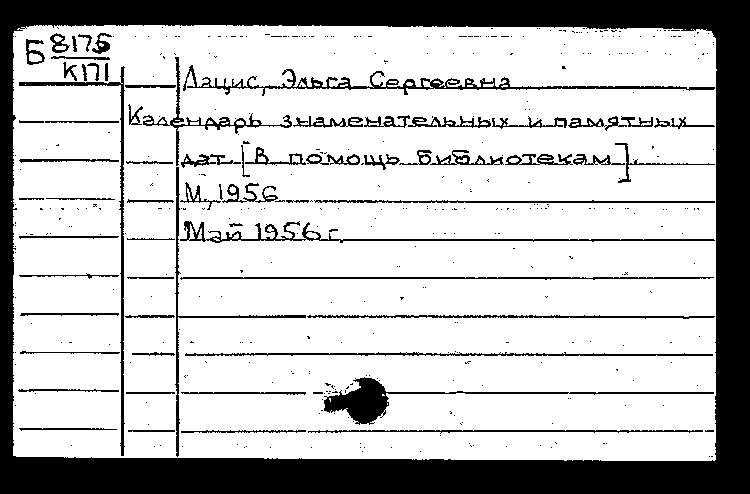 Б 8175
К171
Лацис, Эльга Сергеевна
Календарь знаменательных и памятных
дат. [В помощь библиотекам].
М., 1956
Май 1956 г.